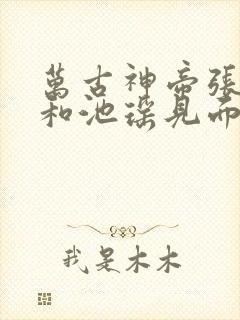 萬古神帝張
和池瑤見面
我是木木